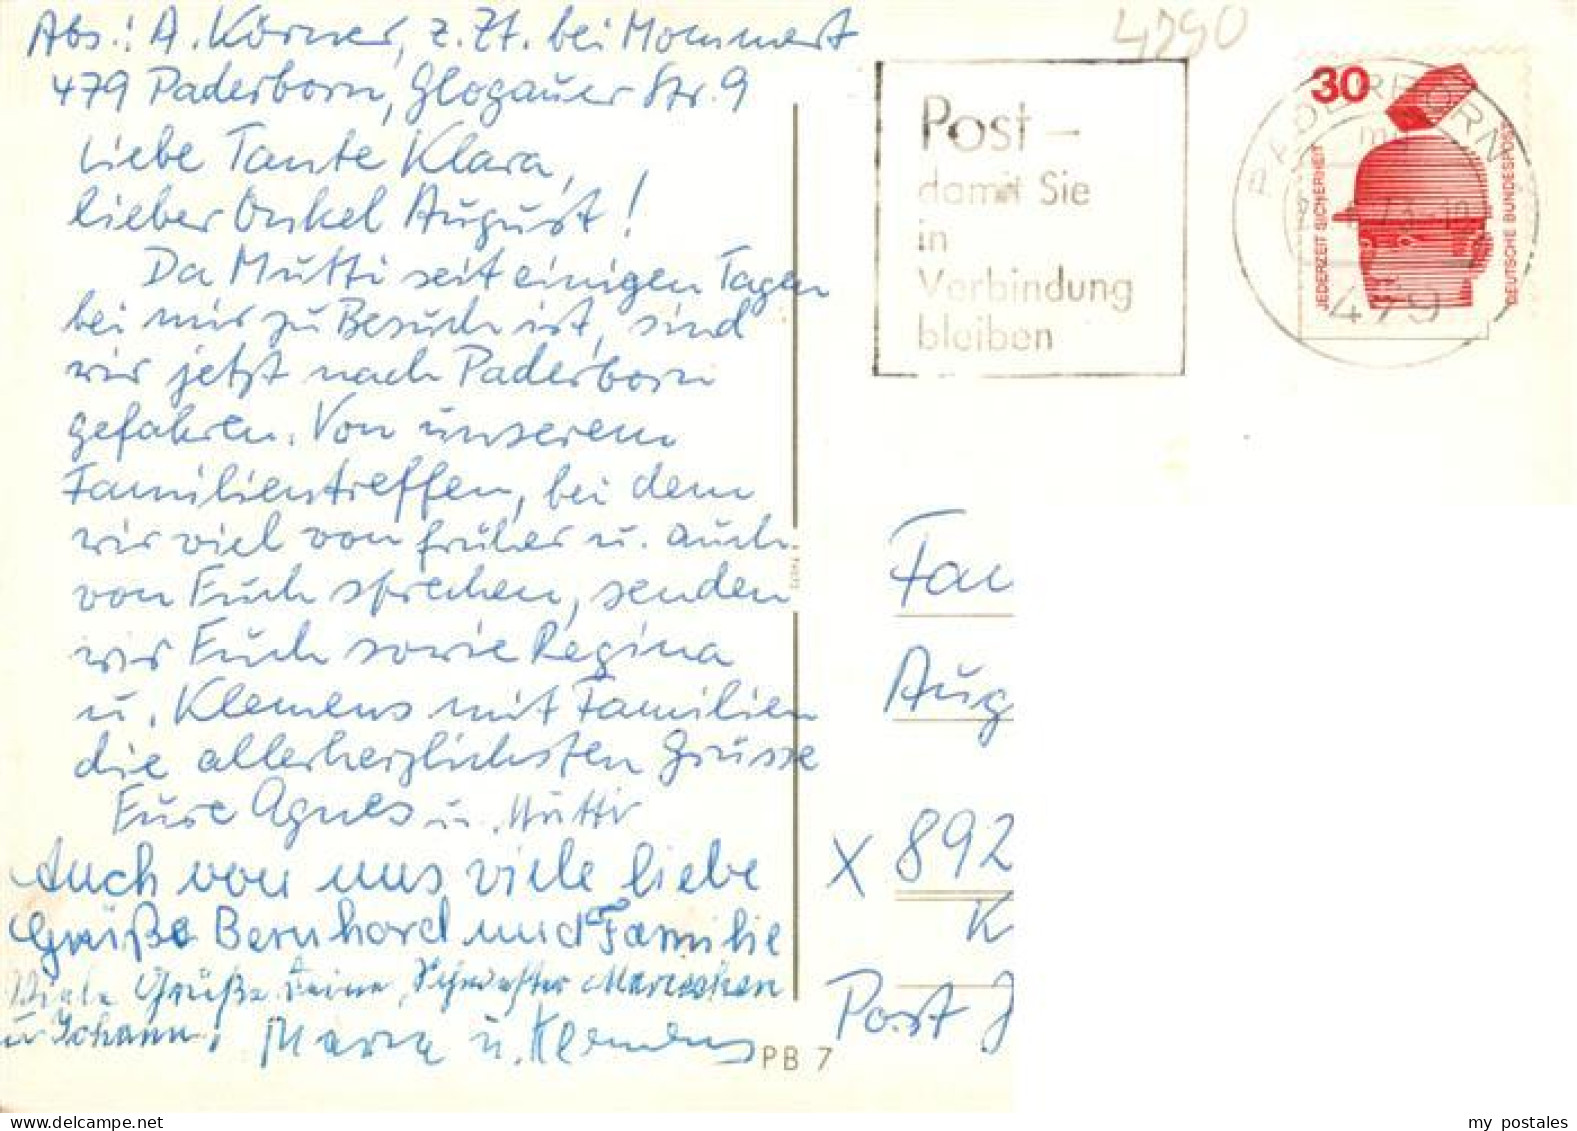 Abs.: A. Körner, z. Zt. bei Mommert
479 Paderborn, Glogauer Str. 9
Liebe Tante Klara,
lieber Onkel August!
Da Mutti seit einigen Tagen
bei mir zu Besuch ist, sind
wir jetzt nach Paderborn
gefahren. Von unserem
Familientreffen, bei dem
wir viel von früher u. auch
von Euch sprechen, senden
wir Euch sowie Regina
u. Klemens mit Familien
die allerherzlichsten Grüsse
Eure Agnes u. Mutti
Auch von uns viele liebe
Grüße Bernhard und Familie
Viele Grüße Deine Schwester Mariechen
u Johann, Maria u. Klemens
PB 7
4790
Post –
damit Sie
in
Verbindung
bleiben
30
JEDERZEIT SICHERHEIT
DEUTSCHE BUNDESPOST
PADERBORN
479
Fam
Aug
X 892
K
Post J
my postales